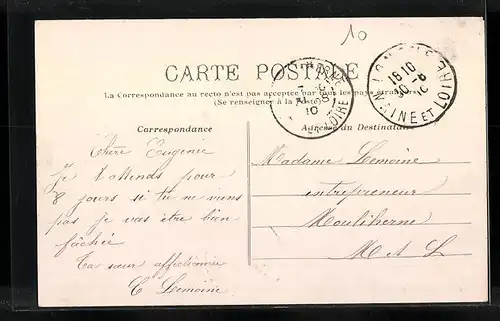 10
CARTE POSTALE
La Correspondance au recto n'est pas acceptée par tous les pays étrangers
(Se renseigner à la Poste)
18 10
30 -8
10
MAINE ET LOIRE
10
LOIRE
Correspondance
Adresse du Destinataire
Chère Eugenie
Je t'attends pour
8 jours si tu ne viens
pas je vas être bien
fâchée
Ta sœur affectionnée
C Lemoine
Madame Lemoine
entrepreneur
Mouliherne
M A L